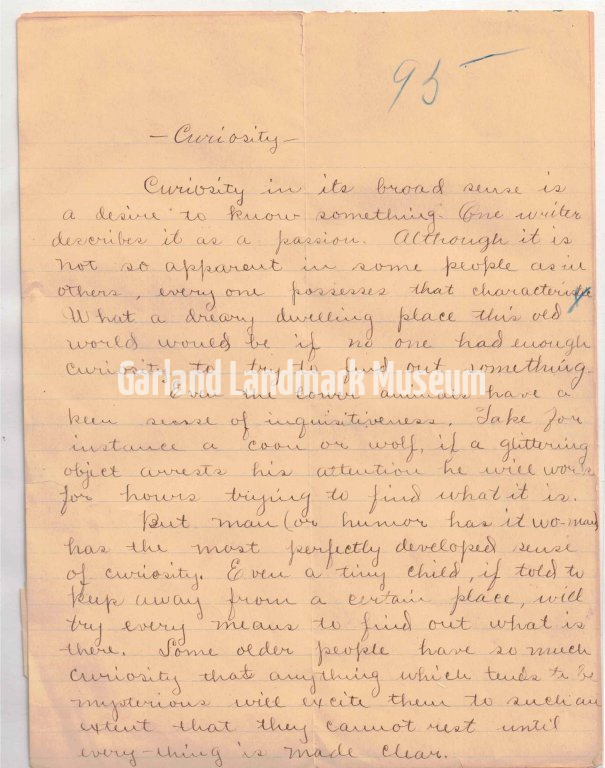 95
- Curiosity -
Curiosity in its broad sense is
a desire to know something. One writer
describes it as a passion. Although it is
not so apparent in some people as in
others, every one possesses that characteristic
What a dreary dwelling place this old
world would be if no one had enough
curiosity to try to find out something.
Garland Landmark Museum
Even the lower animals have a
keen sense of inquisitiveness. Take for
instance a coon or wolf, if a glittering
object arrests his attention he will work
for hours trying to find what it is.
But man (or humor has it wo-man)
has the most perfectly developed sense
of curiosity. Even a tiny child, if told to
keep away from a certain place, will
try every means to find out what is
there. Some older people have so much
curiosity that anything which tends to be
mysterious will excite them to such an
extent that they cannot rest until
every-thing is made clear.